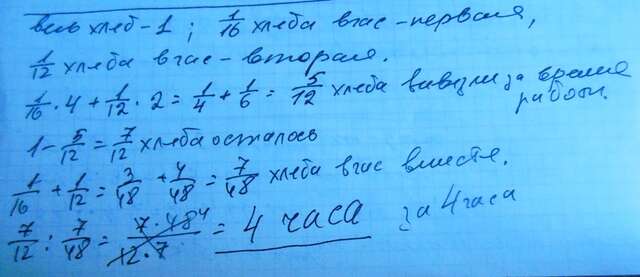 весь хлеб - 1 ; 1/16 хлеба в час - первая,
1/12 хлеба в час - вторая.
1/16 · 4 + 1/12 · 2 = 1/4 + 1/6 = 5/12 хлеба вывезли за время работы.
1 - 5/12 = 7/12 хлеба осталось
1/16 + 1/12 = 3/48 + 4/48 = 7/48 хлеба в час вместе.
7/12 : 7/48 = 7·48/12·7 4 = 4 часа за 4 часа